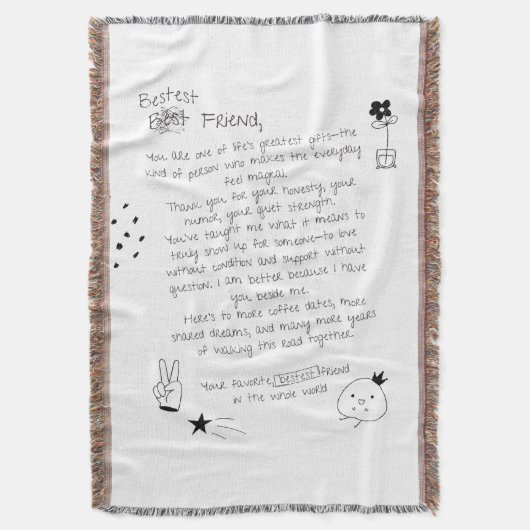 Bestest
Best Friend,
You are one of life's greatest gifts—the
kind of person who makes the everyday
feel magical.
Thank you for your honesty, your
humor, your quiet strength.
You've taught me what it means to
truly show up for someone—to love
without condition and support without
question. I am better because I have
you beside me.
Here's to more coffee dates, more
shared dreams, and many more years
of walking this road together.
Your favorite, bestest friend
in the whole world